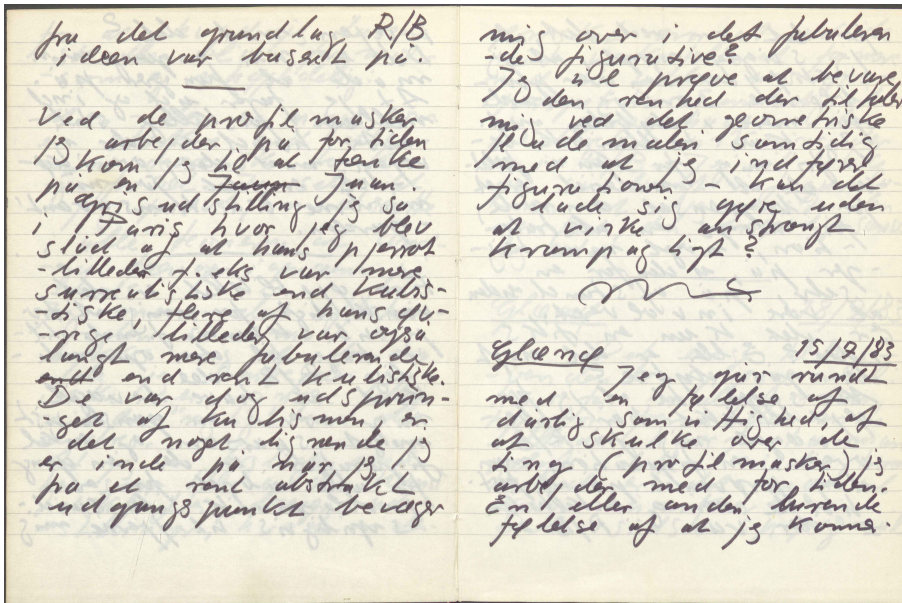 fra det grundlag R/B
ideen var baseret på.
Ved de profilmasker
jg arbejder på for tiden
kom jg til at tænke
på en Juan
Gris udstilling jeg så
i Paris hvor jeg blev
slået af at hans pjerrot
-billeder f. eks var mere
surrealistiske end kubis-
-tiske, flere af hans øv-
-rige billeder var også
langt mere fabulerende
end rent kubistiske.
De var dog udsprun-
-get af kubismen, er
det noget lignende jg
er inde på når jg
på et rent abstrakt
udgangspunkt bevæger
mig over i det fabuleren
-de figurative?
Jg vil prøve at bevare
den renhed der tilfalder
mig ved det geometriske
flade maleri samtidig
med at jg indfører
figurationen - kan det
lade sig gøre uden
at virke anstrengt
krampagtigt?
Glænø 15/7/83
Jeg går rundt
med en følelse af
dårlig samvittighed, af
at skulke over de
ting (profilmasker) jg
arbejder med for tiden.
En eller anden borende
følelse af at jg kommer